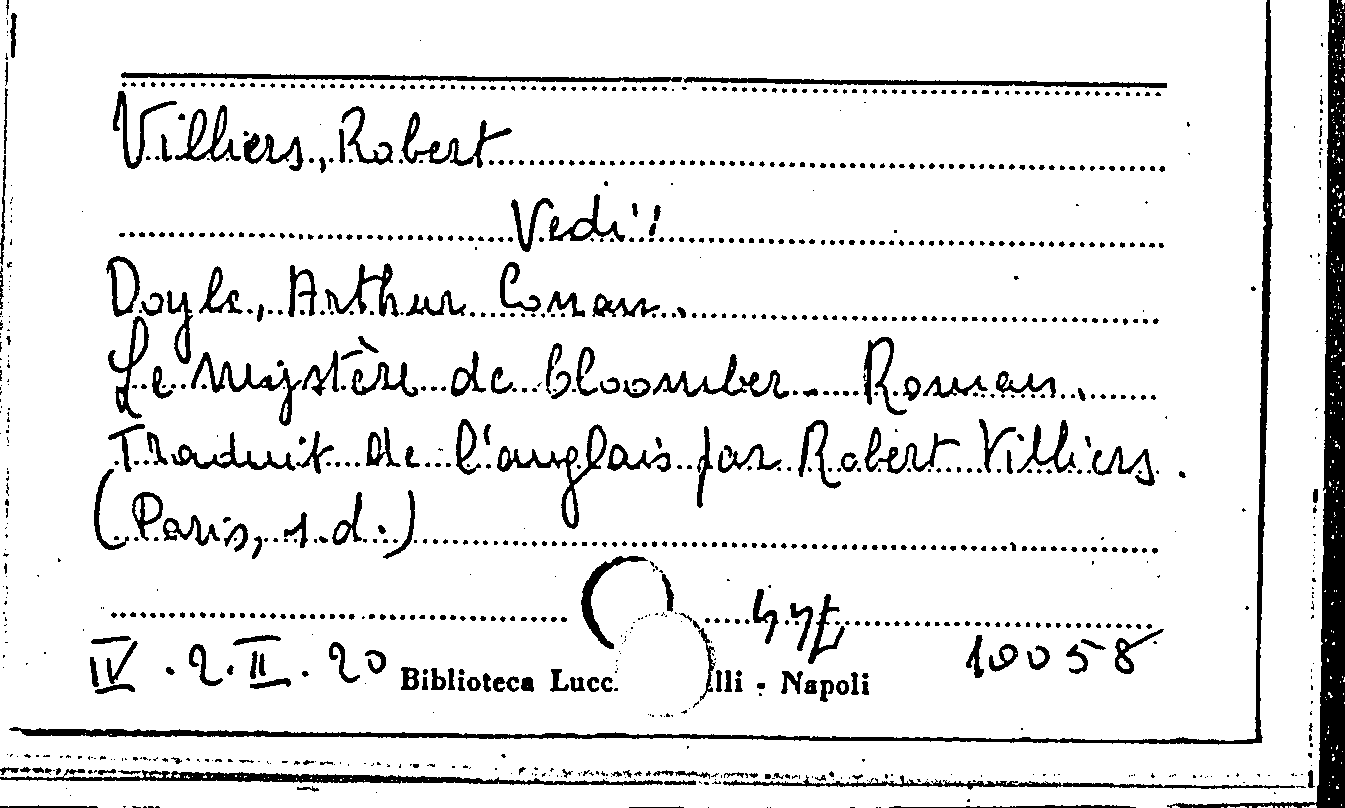 Villiers, Robert
Vedi:
Doyle, Arthur Conan.
Le mystère de Cloomber. Roman.
Traduit de l'anglais par Robert Villiers.
(Paris, s.d.)
IV . 2. II . 20 Biblioteca Lucc lli - Napoli 10058